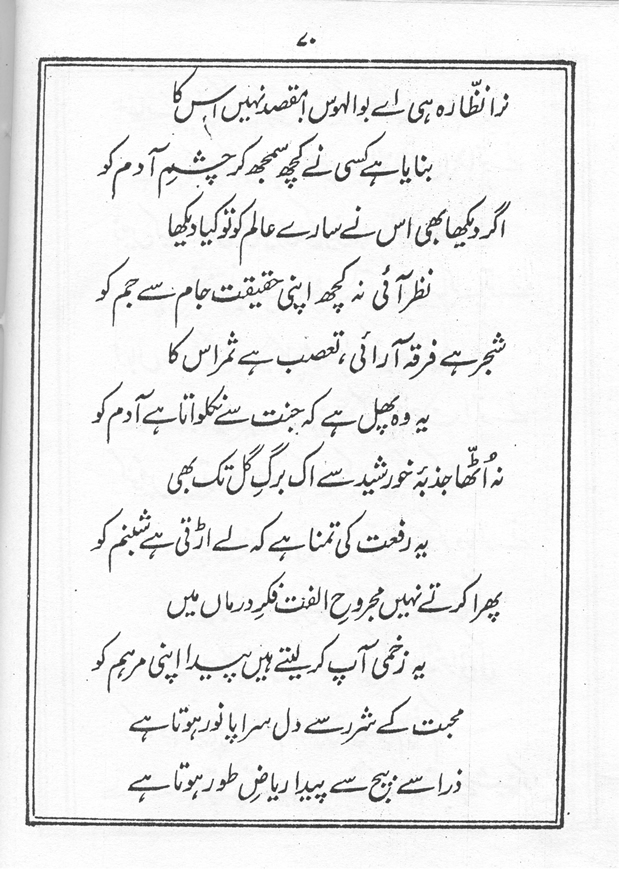 ۷۰
نرا نظّارہ ہی اے بوالہوس مقصد نہیں اس کا
بنایا ہے کسی نے کچھ سمجھ کر چشمِ آدم کو
اگر دیکھا بھی اس نے سارے عالم کو تو کیا دیکھا
نظر آئی نہ کچھ اپنی حقیقت جام سے جم کو
شجر ہے فرقہ آرائی، تعصب ہے ثمر اس کا
یہ وہ پھل ہے کہ جنت سے نکلواتا ہے آدم کو
نہ اُٹھّا جذبۂ خورشید سے اک برگِ گل تک بھی
یہ رفعت کی تمنا ہے کہ لے اڑتی ہے شبنم کو
پھرا کرتے نہیں مجروحِ الفت فکرِ درماں میں
یہ زخمی آپ کر لیتے ہیں پیدا اپنی مرہم کو
محبت کے شرر سے دل سراپا نور ہوتا ہے
ذرا سے بیج سے پیدا ریاضِ طور ہوتا ہے